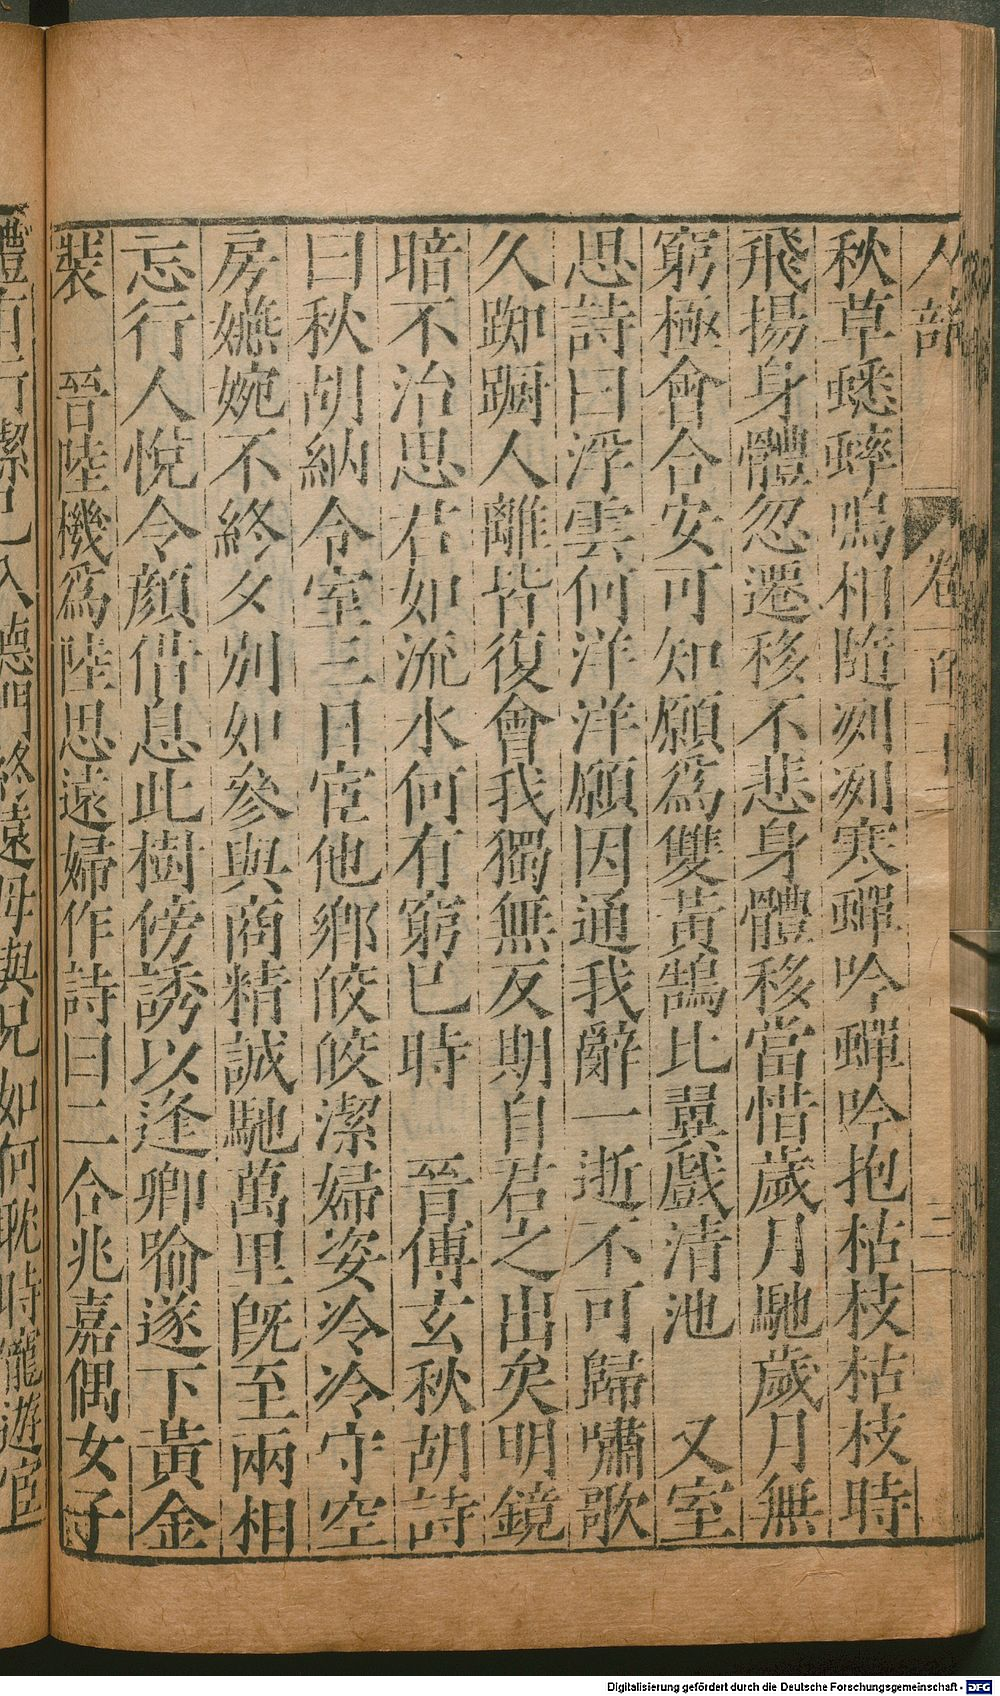 人部　卷
秋草蟋蟀鳴相隨冽冽寒蟬吟蟬吟抱枯枝枯枝時
飛揚身體忽遷移不悲身體移當惜歲月馳歲月無
窮極會合安可知願爲雙黃鵠比翼戲清池　又室
思詩曰浮雲何洋洋願因通我辭一逝不可歸嘯歌
久踟蹰人離皆復會我獨無反期自君之出矣明鏡
暗不治思君如流水何有窮已時　晉傅玄秋胡詩
曰秋胡納令室三日宦他鄉皎皎潔婦姿冷冷守空
房嬿婉不終夕別如參與商精誠馳萬里既至兩相
忘行人悅令顏借息此樹傍誘以逢卿喻遂下黃金
裝　晉陸機爲陸思遠婦作詩曰二合兆嘉偶女子
禮有行潔己入德門終遠母與兄如何耽時寵遊宦
Digitalisierung gefördert durch die Deutsche Forschungsgemeinschaft - DFG